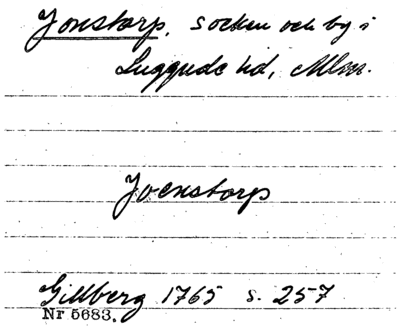 Jonstorp, socken och by i
Luggude hd, Mlm.
Joenstorp
Gillberg 1765 s. 257
Nr 5683.